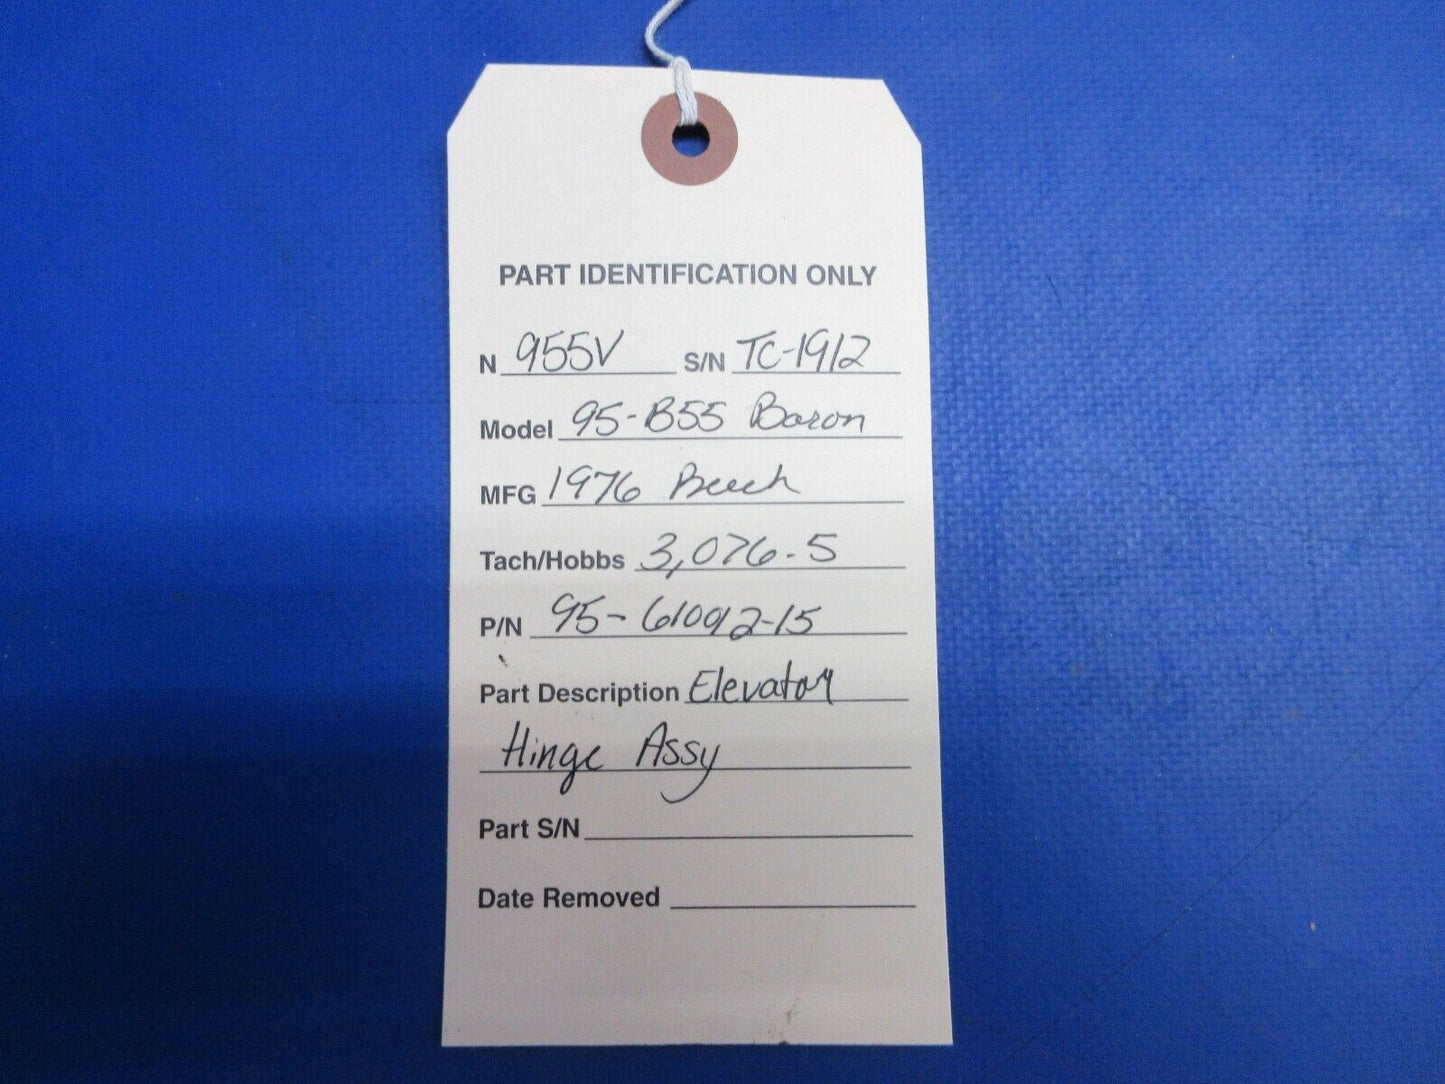 PART IDENTIFICATION ONLY
N 955V S/N TC-1912
Model 95-B55 Baron
MFG 1976 Beech
Tach/Hobbs 3,076.5
P/N 95-610012-15
Part Description Elevator
Hinge Assy
Part S/N
Date Removed